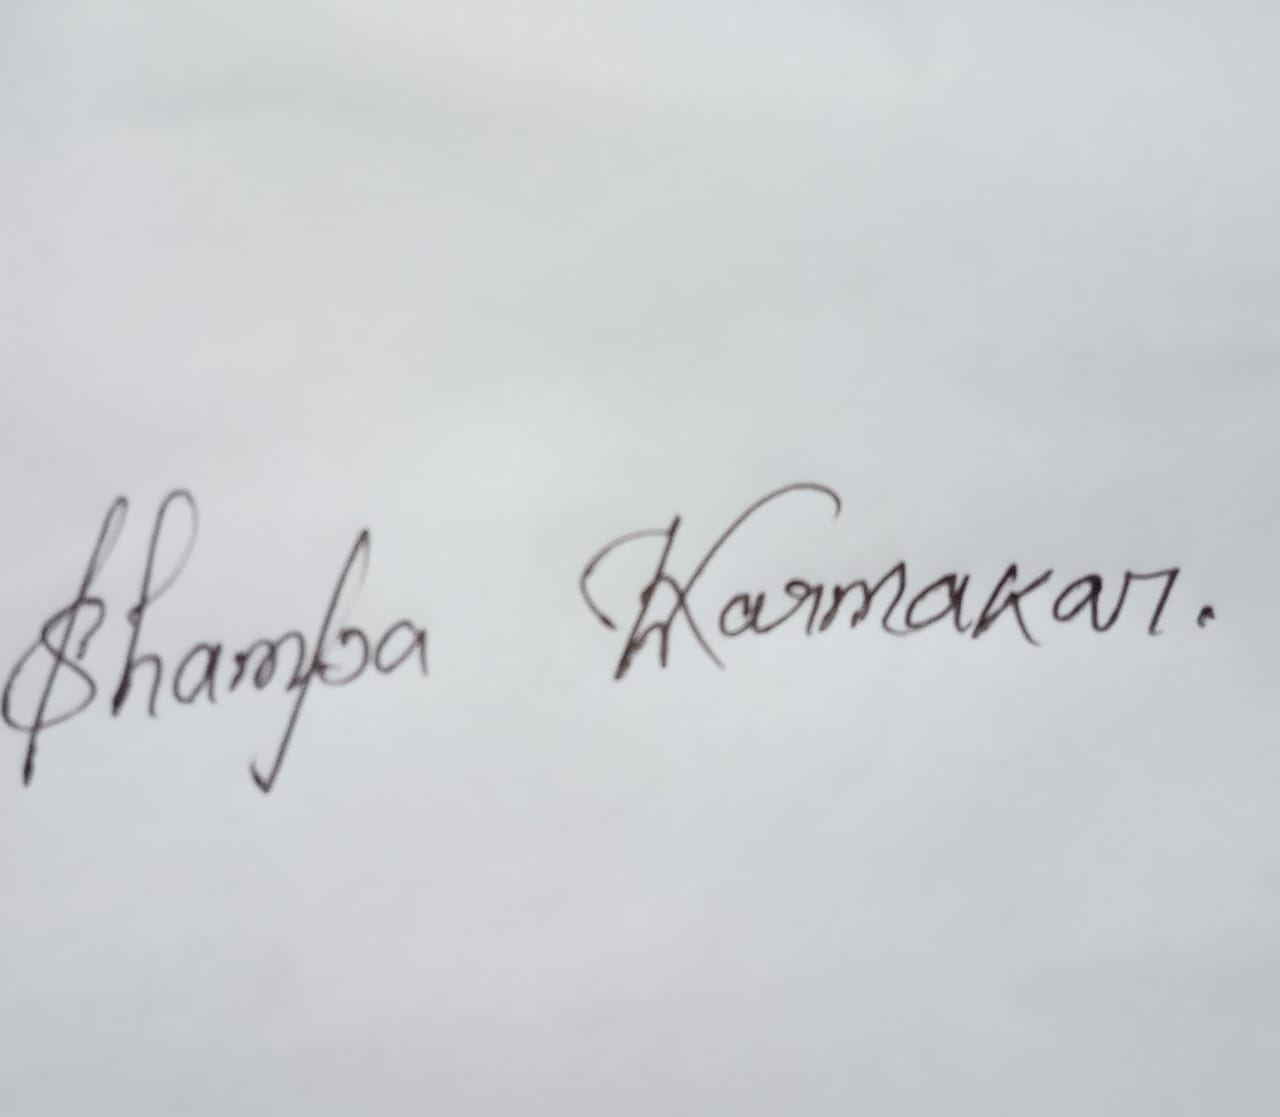 Shampa Karmakar.